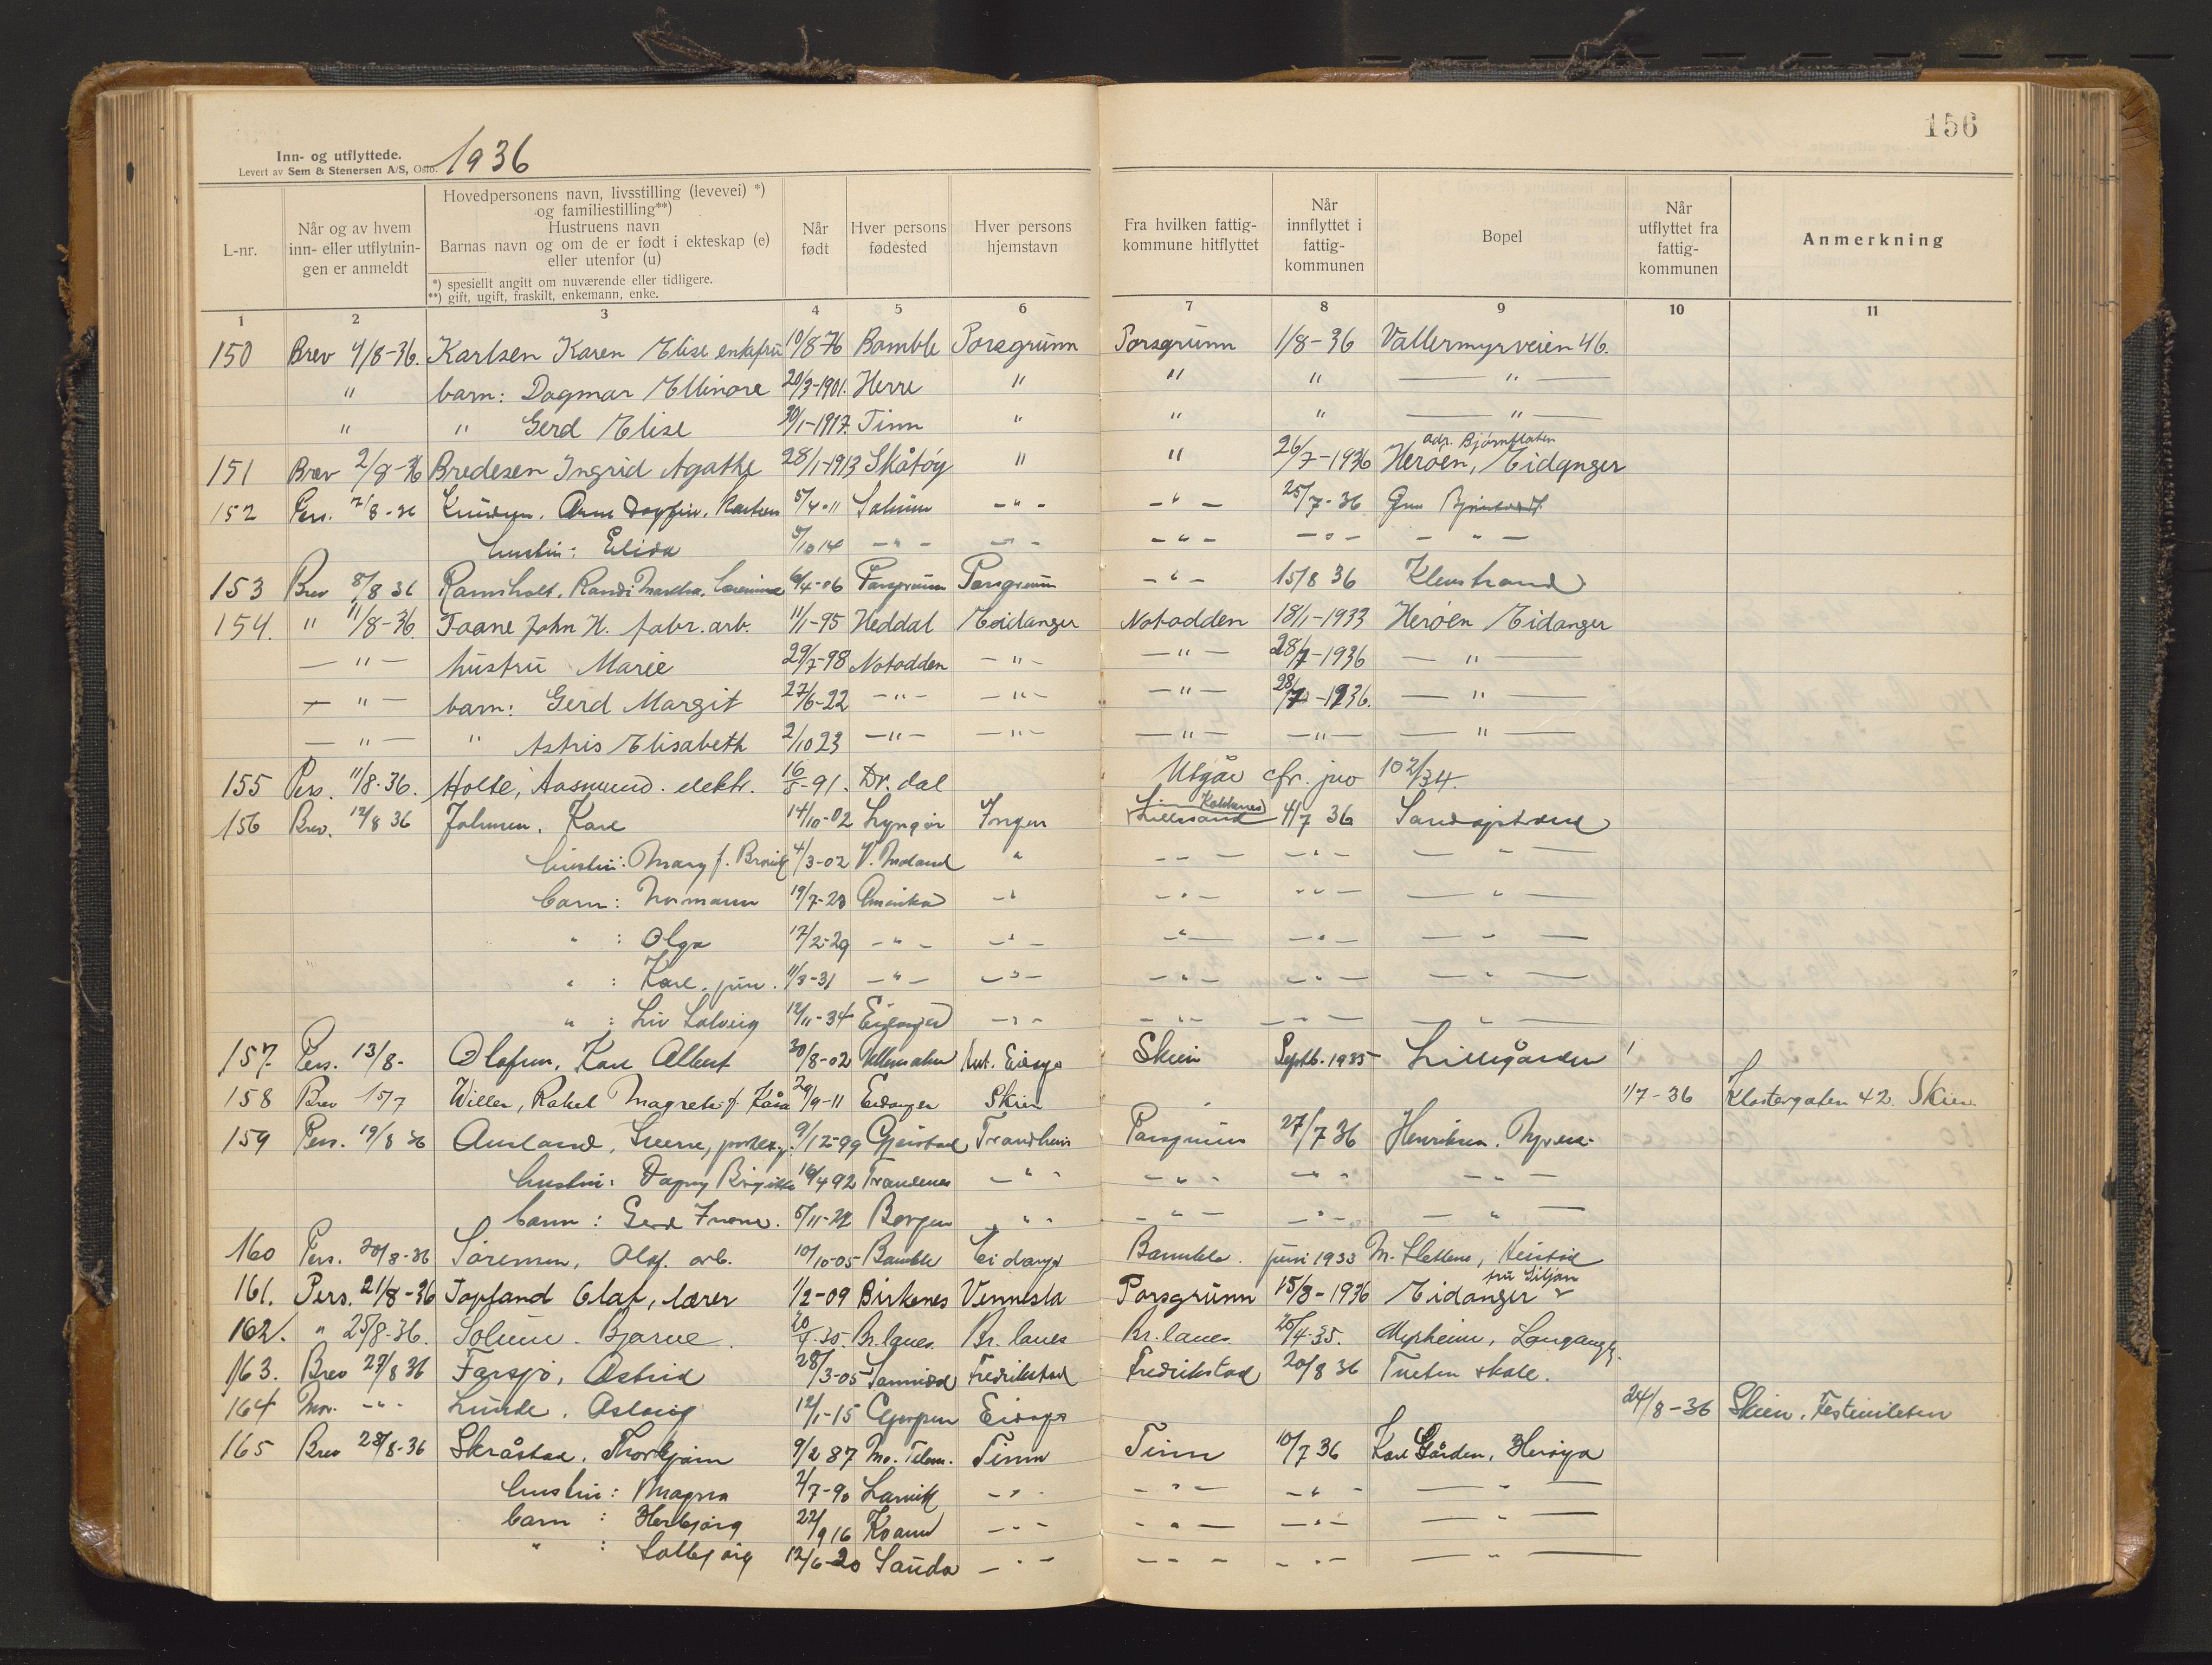 156
Inn- og utflyttede.
Levert av Sem & Stenersen A/S, Oslo. 1936
L-nr.
Når og av hvem inn- eller utflytningen er anmeldt
Hovedpersonens navn, livsstilling (levevei) *)
og familiestilling**)
Hustruens navn
Barnas navn og om de er født i ekteskap (e)
eller utenfor (u)
*) spesielt angitt om nuværende eller tidligere.
**) gift, ugift, fraskilt, enkemann, enke.
Når født
Hver persons fødested
Hver persons hjemstavn
Fra hvilken fattigkommune hitflyttet
Når innflyttet i fattigkommunen
Bopel
Når utflyttet fra fattigkommunen
Anmerkning
1 2 3 4 5 6 7 8 9 10 11
150 Brev 4/8-36. Karlsen Karen Elise enkefru 10/8-76 Bamble Porsgrunn Porsgrunn 1/8-36 Vallermyrveien 46.
" barn: Dagmar Ellinore 20/3-1901. Herre " " " — " —
" " Gerd Elise 30/1-1917. Tinn " " " — " —
adr. Bjørnflaten
151 Brev 2/8-36 Bredesen Ingrid Agathe 28/1-1913 Skåtøy " " 26/7-1936 Herøen, Eidanger
152 Pers. 7/8-36 Knudsen, Arne Dagfin. 5/4-11 Solum - " - - " - 25/7-36
hustru: Elida 5/10 14 - " - - " - - " - - " - - " -
153 Brev 8/8 36 Ramsholt, Randi Martha, 6/4-06 Porsgrunn Porsgrunn - " - 15/8 36 Klevstrand
154. " 11/8-36. Taane John H. fabr. arb. 11/1-95 Heddal Eidanger Notodden 18/1-1933 Herøen Eidanger
— " — hustru Marie 29/7-98 Notodden - " - - " - 28/7-1936 — " —
— " — barn: Gerd Margit 27/6-22 - " - - " - - " - 28/7-1936. — " —
— " — " Astris Elisabeth 2/10 23 - " - - " - - " - - " - — " —
155 Pers. 11/8-36. Holte, Aasmund. elektr. 16/8-91. Dr.dal Utgår cfr. jno 102/34.
156 Brev. 12/8 36 Johnsen, Karl 14/10-02 Lyngør Ingen Lillesand 4/7 36
hustru: Mary f. 4/3-02 V. Moland " - " - - " - — " —
barn: Normann 19/7-28 Amerika - " - " - - " - — " —
" : Olga 17/2-29 - " - - " - - " - - " - — " —
" : Karl. jun. 11/3-31 - " - - " - - " - - " - — " —
" : Liv Solveig 12/11-34 Eidanger - " - - " - - " - — " —
157 Pers. 13/8- Olafsen, Karl Albert 30/8-02 Skien Septb. 1935 Lillegården
158 Brev 15/7 Willer, Rakel Magrete f. Kåsa 29/9-11 Eidanger Skien 1/7-36 Klostergaten 42. Skien.
159 Pers. 19/8 36 Ausland, Sverre, 9/12-99 Gjerstad Trondheim Porsgrunn 27/7 36 Henriksen,
hustru: Dagny Birgitte 16/4 92 Trondenes - " - - " - - " - - " -
barn: Gerd 5/11-22 Bergen - " - - " - - " - - " -
160 Pers. 20/8-36 Sørensen, Olaf. arb. 10/10-05 Bamble Eidanger Bamble. juni 1933 M. Slettene,
fru Siljan
161. Pers. 21/8-36 Topland Olaf, lærer 1/2-09 Birkenes Vennesla Porsgrunn 15/8-1936 Eidanger
162. " 25/8-36. Solum. Bjarne. 20/4.35. Br.lanes. Br. lanes Br. lanes 25/4.35. Myrheim, Langang
163. Brev 27/8 36 Farsjø, Astrid 28/3-05 Sannidal Fredrikstad Fredrikstad 20/8 36 Tveten skole.
164 - " - Lunde, Aslaug 12/1-15 Gjerpen Eidanger 24/8-36 Skien. Festiviteten
165 Brev 28/8-36 Skråstad, Thorbjørn 9/2 87 Mo. Telem. Tinn Tinn 10/7 36 Karl Gården, Herøya
hustru: Magna 2/7-90 Larvik - " - - " - - " - — " —
barn: Herbjørg 22/9 16 - " - - " - - " - — " —
" : Solbjørg 12/6-20 Sauda - " - - " - - " - — " —